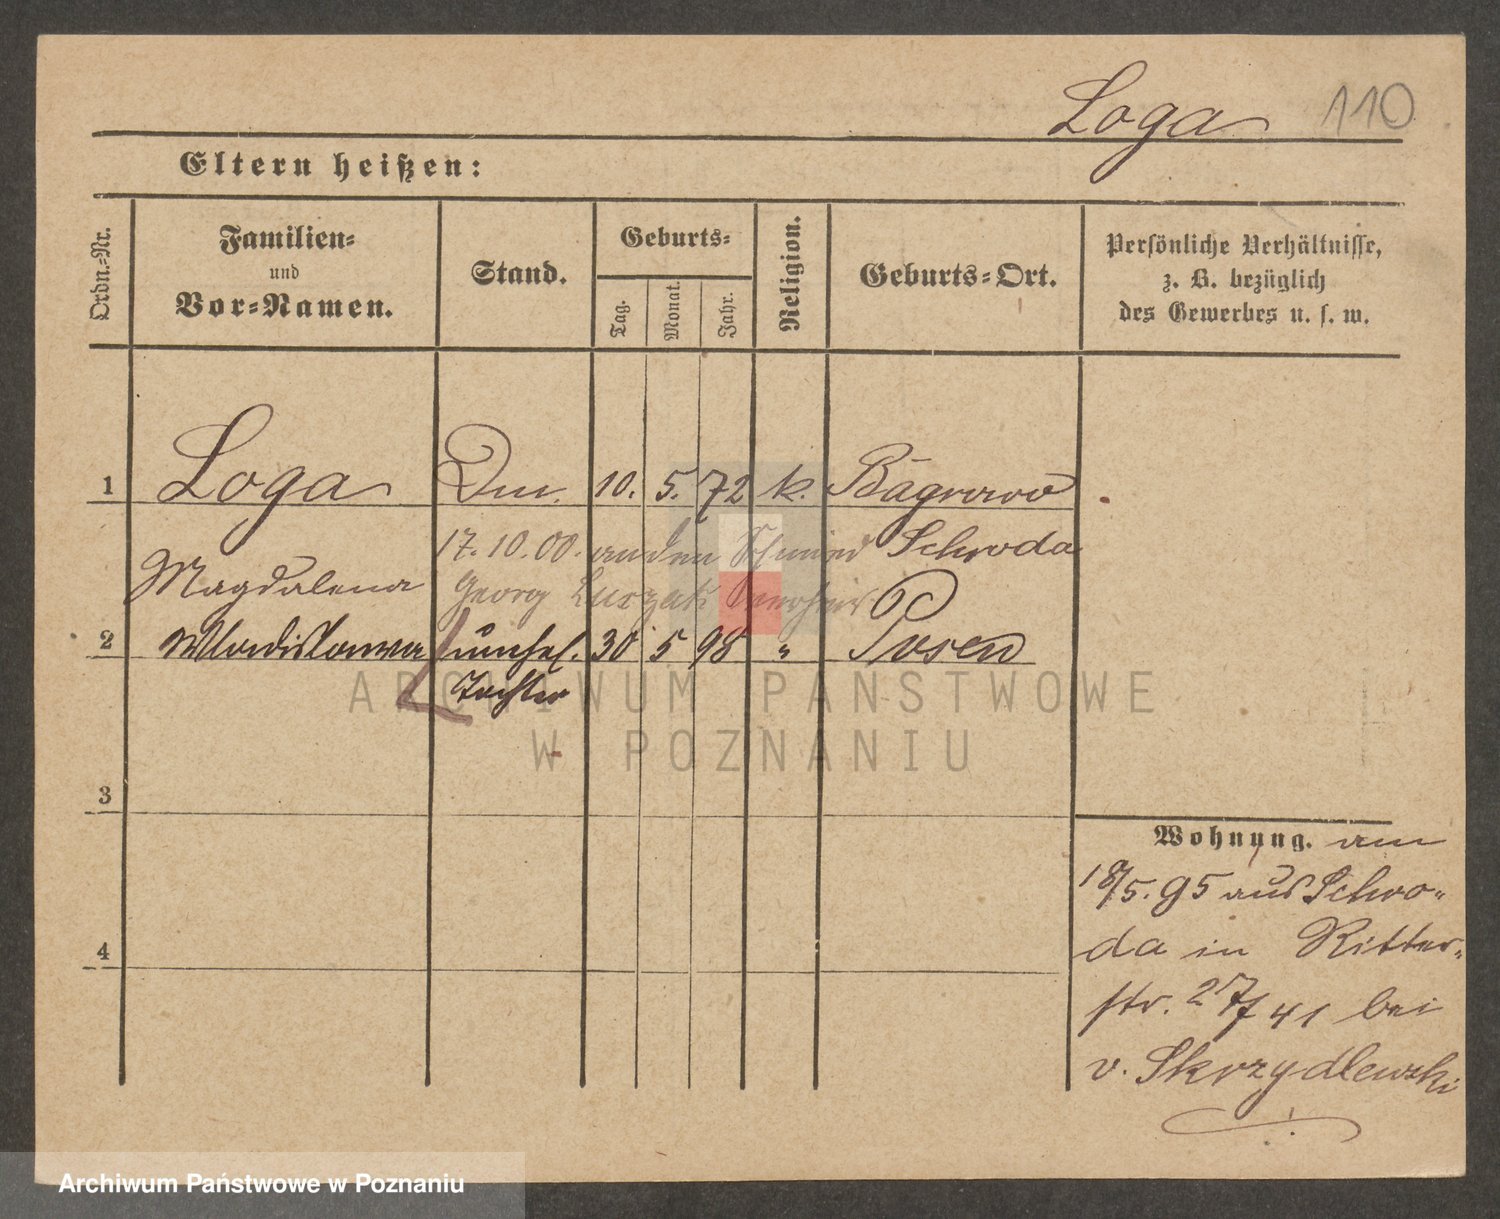 Loga 110
Eltern heißen:
Ordn.-Nr.
Familien-
und
Vor-Namen.
Stand.
Geburts-
Tag.
Monat.
Jahr.
Religion.
Geburts-Ort.
Persönliche Verhältnisse,
z. B. bezüglich
des Gewerbes u. s. w.
1 Loga 10. 5. 72 k. Bagrowo
17. 10. 00. an den Schmied Schroda
Magdalena Georg
2 Wladislawa unehel. 30 5 98 " Posen
Tochter
ARCHIWUM PAŃSTWOWE
W POZNANIU
3
Wohnung. am
18/5. 95 aus Schro-
4
da in Ritter-
str. bei
v. Skrzydlewski
Archiwum Państwowe w Poznaniu